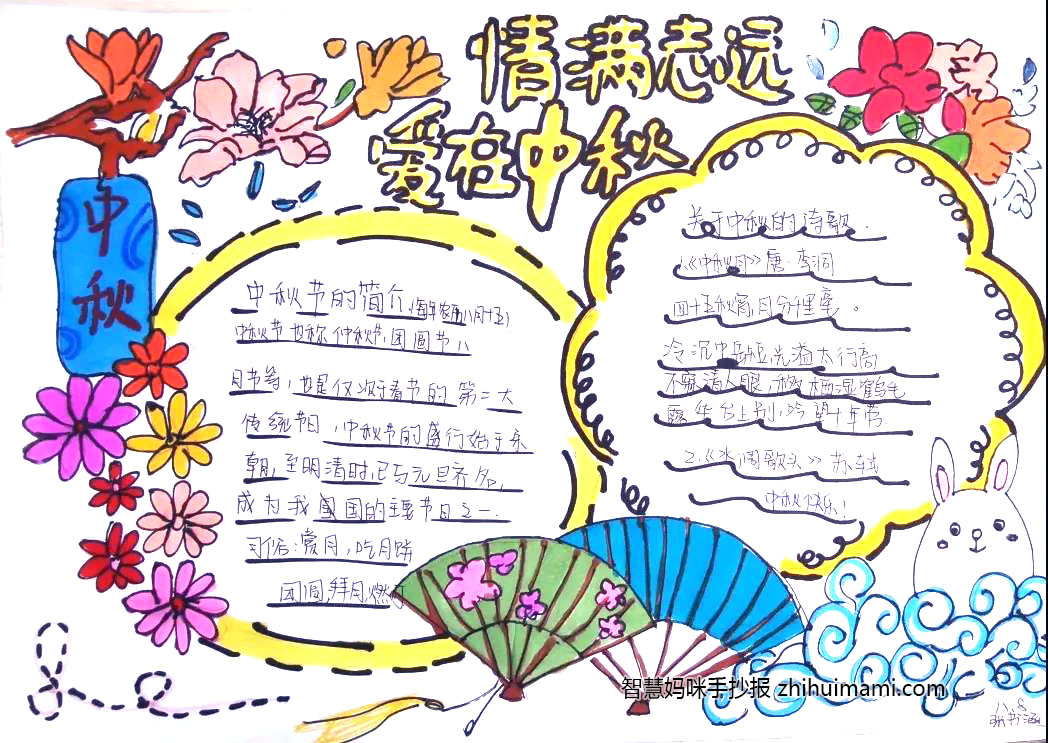 情满志远
爱在中秋
中秋
中秋节的简介(每年农历八月十五)
中秋节也称仲秋节,团圆节八
月节等,也是仅次于春节的第二大
传统节日,中秋节的盛行始于宋
朝,至明清时,已与元旦齐名,
成为我国的主要节日之一.
习俗:赏月,吃月饼
团圆,拜月,燃
关于中秋的诗歌.
1《中秋月》唐·李洞
四十五秋宵,月分千里毫。
冷沉中岳短,光溢太行高
不寐清人眼,移栖湿鹤毛
露华台上别,吟望十年劳.
2.《水调歌头》苏轼
中秋快乐!
智慧妈咪手抄报 zhihuimami.com
八.8